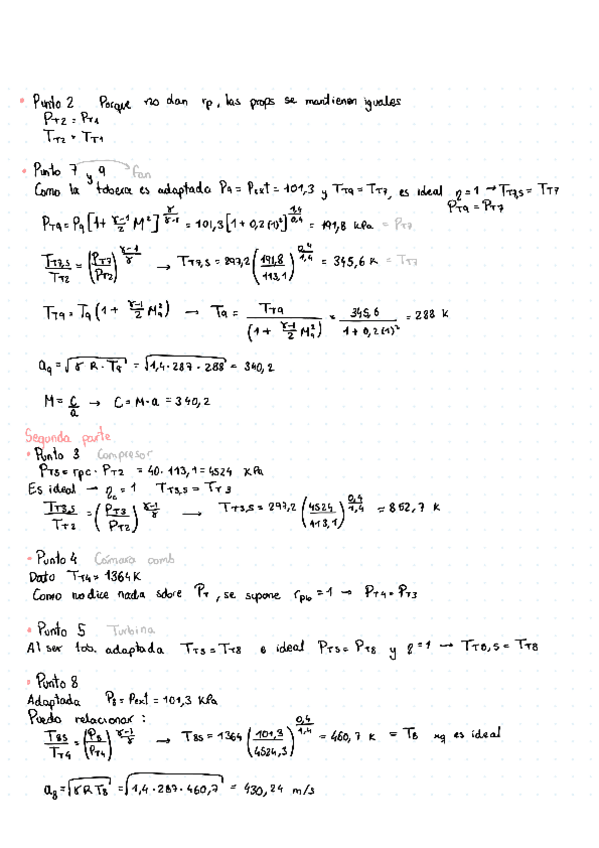 • Punto 2 Porque no dan rp, las props se mantienen iguales
P_T2 = P_T1
T_T2 = T_T1
• Punto 7 y 9 fan
Como la tobera es adaptada P9 = Pext = 101,3 y T_T9 = T_T7, es ideal η = 1 → T_T7,s = T_T7
P_T9 = P_T7
P_T9 = P_9 [1 + (γ-1)/2 M²]^(γ/(γ-1)) = 101,3 [1 + 0,2 (1)²]^(1,4/0,4) = 191,8 kPa = P_T7
T_T7,s/T_T2 = (P_T7/P_T2)^((γ-1)/γ) → T_T7,s = 297,2 (191,8/113,1)^(0,4/1,4) = 345,6 K = T_T7
T_T9 = T_9 (1 + (γ-1)/2 M_9²) → T_9 = T_T9/(1 + (γ-1)/2 M_9²) = 345,6/(1 + 0,2 (1)²) = 288 K
a_9 = √(γ · R · T_9) = √(1,4 · 287 · 288) = 340,2
M = C/a → C = M · a = 340,2
Segunda parte
• Punto 3 Compresor
P_T3 = rpc · P_T2 = 40 · 113,1 = 4524 kPa
Es ideal → η_c = 1 T_T3,s = T_T3
T_T3,s/T_T2 = (P_T3/P_T2)^((γ-1)/γ) → T_T3,s = 297,2 (4524/113,1)^(0,4/1,4) = 852,7 K
• Punto 4 Cámara comb
Dato T_T4 = 1364 K
Como no dice nada sobre P_T, se supone r_pb = 1 → P_T4 = P_T3
• Punto 5 Turbina
Al ser tob. adaptada T_T5 = T_T8 e ideal P_T5 = P_T8 y η = 1 → T_T8,s = T_T8
• Punto 8
Adaptada P_8 = Pext = 101,3 kPa
Puedo relacionar :
T_8s/T_T4 = (P_8/P_T4)^((γ-1)/γ) → T_8s = 1364 (101,3/4524,3)^(0,4/1,4) = 460,7 K = T_8 xq es ideal
a_8 = √(γ R T_8) = √(1,4 · 287 · 460,7) = 430,24 m/s